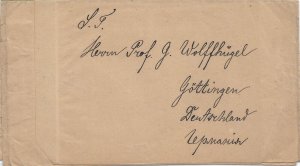 S. T.
Herrn Prof. G. Wolffhügel
Göttingen
Deutschland
Германия